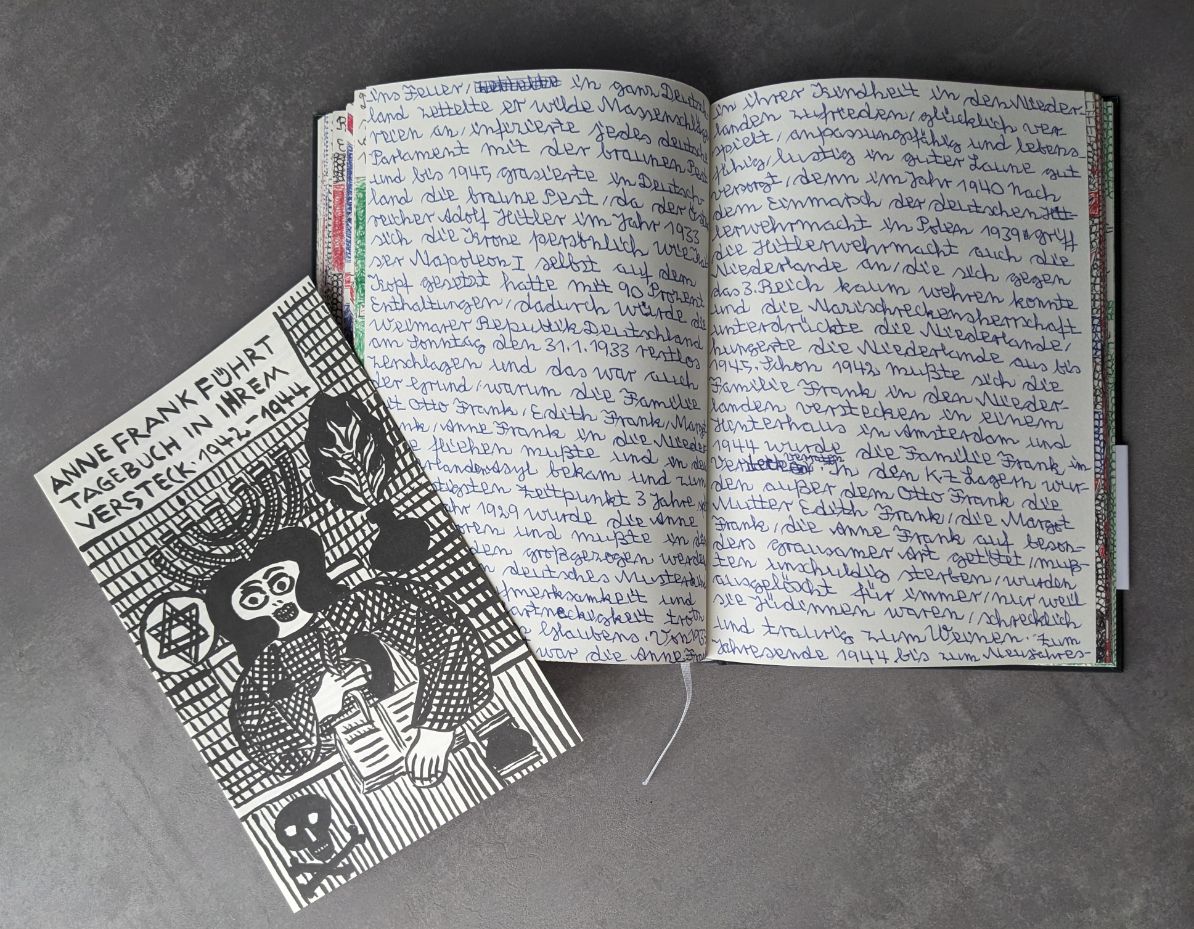 ANNE FRANK FÜHRT
TAGEBUCH IN IHREM
VERSTECK. 1942–1944
ins Feuer, in ganz Deutsch-
land zettelte er wilde Massenschläge
reien an, infizierte jedes deutsche
Parlament mit der braunen Pest
und bis 1945 grasierte in Deutsch-
land die braune Pest, da der Öster
reicher Adolf Hitler im Jahr 1933
sich die Krone persönlich wie Kai
ser Napoleon I selbst auf dem
Kopf gesetzt hatte mit 90 Prozent
Enthaltungen, dadurch würde die
Weimarer Republik Deutschland
am Sonntag den 31.1.1933 restlos
zerschlagen und das war auch
der Grund, warum die Familie
Otto Frank, Edith Frank, Marg
Anne Frank in die Nieder
fliehen mußte und in den
bekam und zum
Zeitpunkt 3 Jahre
1929 wurde die Anne
und mußte in den
großgezogen werden
deutsches
und
trotz
Glaubens. Von
war die Anne Fra
in ihrer Kindheit in den Nieder-
landen zufrieden, glücklich ver
spielt, anpassungsfähig und lebens-
fähig, lustig in guter Laune gut
versorgt, denn im Jahr 1940 nach
dem Einmarsch der deutschen Hit-
lerwehrmacht in Polen 1939 griff
die Hitlerwehrmacht auch die
Niederlande an, die sich gegen
das 3. Reich kaum wehren konnte
und die Nazischreckensherrschaft
unterdrückte die Niederlande,
hungerte die Niederlande aus bis
1945. Schon 1942 mußte sich die
Familie Frank in den Nieder-
landen verstecken in einem
Hinterhaus in Amsterdam und
1944 wurde die Familie Frank in
Versteck verraten. In den K-Z Lagern wur-
den außer dem Otto Frank die
Mutter Edith Frank, die Margot
Frank, die Anne Frank auf beson-
ders grausamer Art getötet, muß-
ten unschuldig sterben, wurden
ausgelöscht für immer, nur weil
sie Jüdinnen waren, schrecklich
und traurig zum Weinen. Zum
Jahresende 1944 bis zum Neujahres-